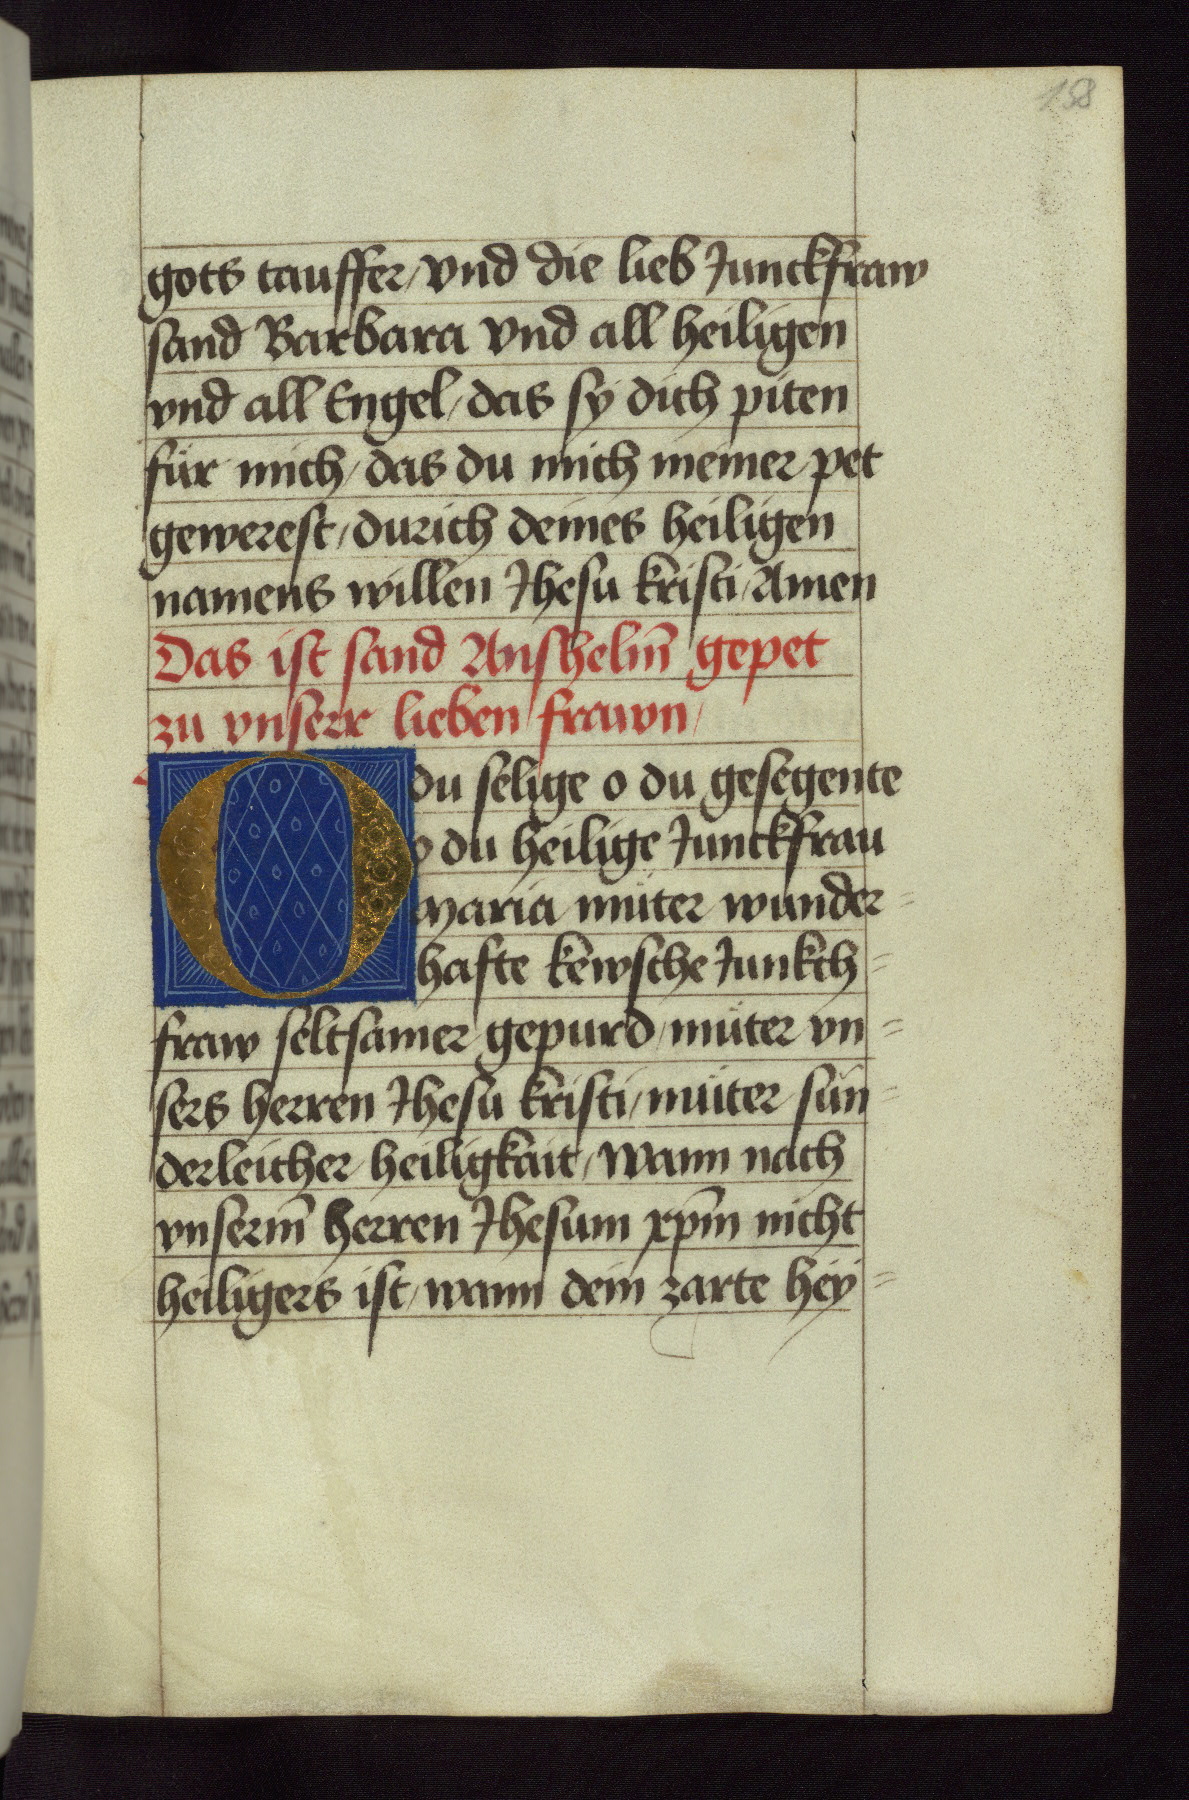 158
gots tauffer / vnd die lieb Junckfraw
sand Barbara vnd all heiligen
vnd all Engel / das sÿ dich piten
für mich / das du mich meiner pet
gewerest / durich deines heiligen
namens willen Jhesu kristi / Amen
Das ist sand Anshelm̄ gepet
zu vnserr lieben frawn /
O du selige o du gesegente
o du heilige Junckfrau
maria müter wunder=
hafte kewsche Junkch=
fraw seltsamer gepurd / müter vn=
sers herren Jhesu kristi / müter sün=
derleicher heiligkait / wann nach
vnserm̄ herren Jhesum xp̄m nicht
heiligers ist / wann dein zarte heÿ=